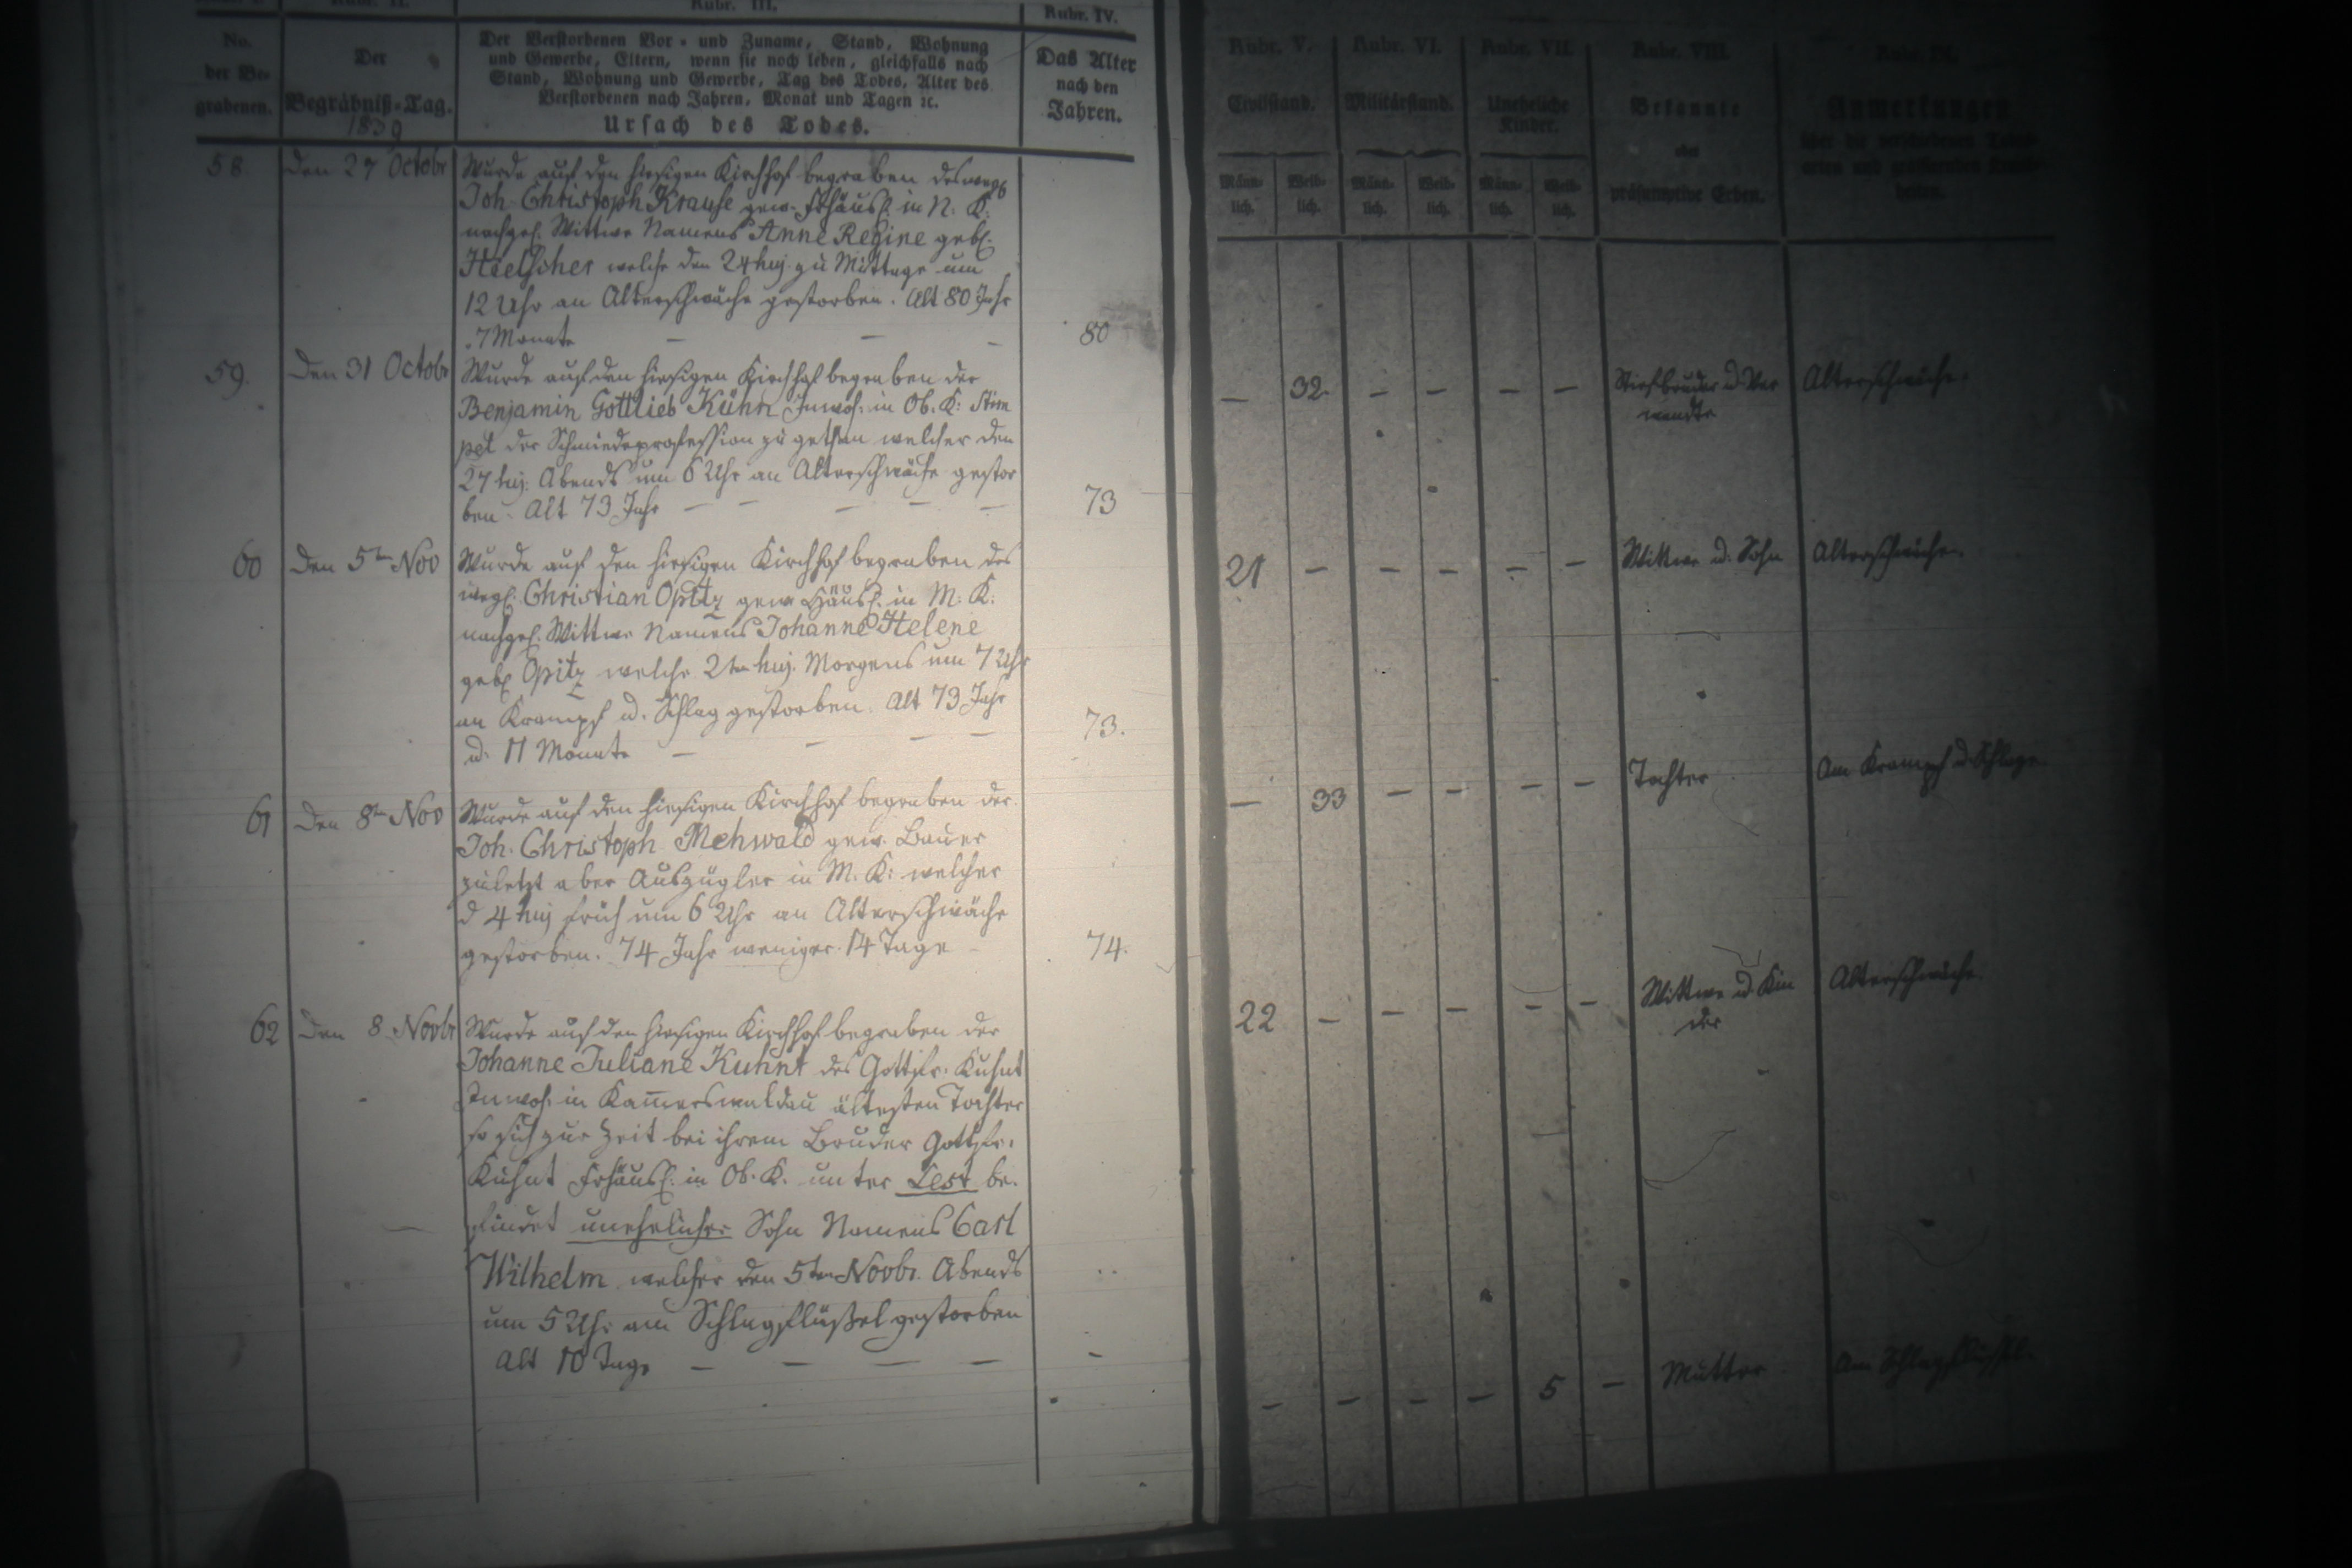 Rubr. III.
Rubr. IV.
No.
der Be-
grabenen.
Der
Begräbniß-Tag.
1839
Der Verstorbenen Vor- und Zuname, Stand, Wohnung
und Gewerbe, Eltern, wenn sie noch leben, gleichfalls nach
Stand, Wohnung und Gewerbe, Tag des Todes, Alter des
Verstorbenen nach Jahren, Monat und Tagen ꝛc.
Ursach des Todes.
Das Alter
nach den
Jahren.
58
Den 27 Octobr
Wurde auf den hiesigen Kirchhof begraben des
Joh. Christoph Krause gew. Frhäusl. in N: K:
nachgel. Wittwe Namens Anne Regine geb.
Hielscher welche den 24 huj. zu Mittage um
12 Uhr an Altersschwäche gestorben. Alt 80 Jahr
7 Monate
80
59.
Den 31 Octobr
Wurde auf den hiesigen Kirchhof begraben der
Benjamin Gottlieb Kühn Inwoh. in Ob. K:
pel der Schmiedeprofession zu gethan welcher den
27 huj. Abends um 6 Uhr an Altersschwäche gestor
ben. Alt 73 Jahr
73
60
Den 5ten Nov
Wurde auf den hiesigen Kirchhof begraben des
weyl. Christian Opitz gew. Häusl. in M: K:
nachgel. Wittwe Namens Johanne Helene
geb. Opitz welche 2ten huj. Morgens um 7 Uhr
an Krampf u. Schlag gestorben. Alt 73 Jahr
u. 11 Monate
73.
61
Den 8ten Nov
Wurde auf den hiesigen Kirchhof begraben der
Joh. Christoph Mehwald gew. Bauer
zuletzt aber Auszügler in M. K: welcher
d 4 huj früh um 6 Uhr an Altersschwäche
gestorben. 74 Jahr weniger 14 Tage
74.
62
Den 8 Novbr
Wurde auf den hiesigen Kirchhof begraben der
Johanne Juliane Kuhnt des Gottfr. Kuhnt
Inwoh. in Kam̅erswaldau ältesten Tochter
so sich zur Zeit bei ihrem Bruder Gottfr.
Kuhnt Frhäusl. in Ob. K. unter Lest be-
findet unehelicher Sohn Namens Carl
Wilhelm welcher den 5ten Novbr. Abends
um 5 Uhr am Schlagflüßel gestorben
Alt 10 Tage
Rubr. V.
Civilstand.
Männ-
lich.
Weib-
lich.
Rubr. VI.
Militärstand.
Männ-
lich.
Weib-
lich.
Rubr. VII.
Uneheliche
Kinder.
Männ-
lich.
Weib-
lich.
Rubr. VIII.
Bekannte
oder
präsumptive Erben.
Rubr. IX.
Anmerkungen
— 32. — — — — Stiefbruder u. Ver
wandte
Altersschwäche.
21 — — — — — Wittwe u. Sohn
Altersschwäche.
— 33 — — — — Tochter
Am Krampf u. Schlage
22 — — — — — Wittwe u. Kin
der
Altersschwäche.
— — — — 5 — Mutter
Am Schlagflüßel.